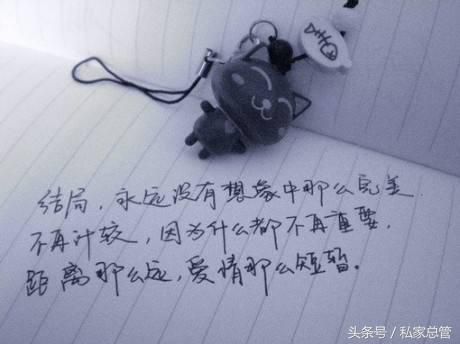 结局，永远没有想象中那么完美.
不再计较，因为什么都不再重要，
距离那么远，爱情那么短暂。
头条号／私家总管